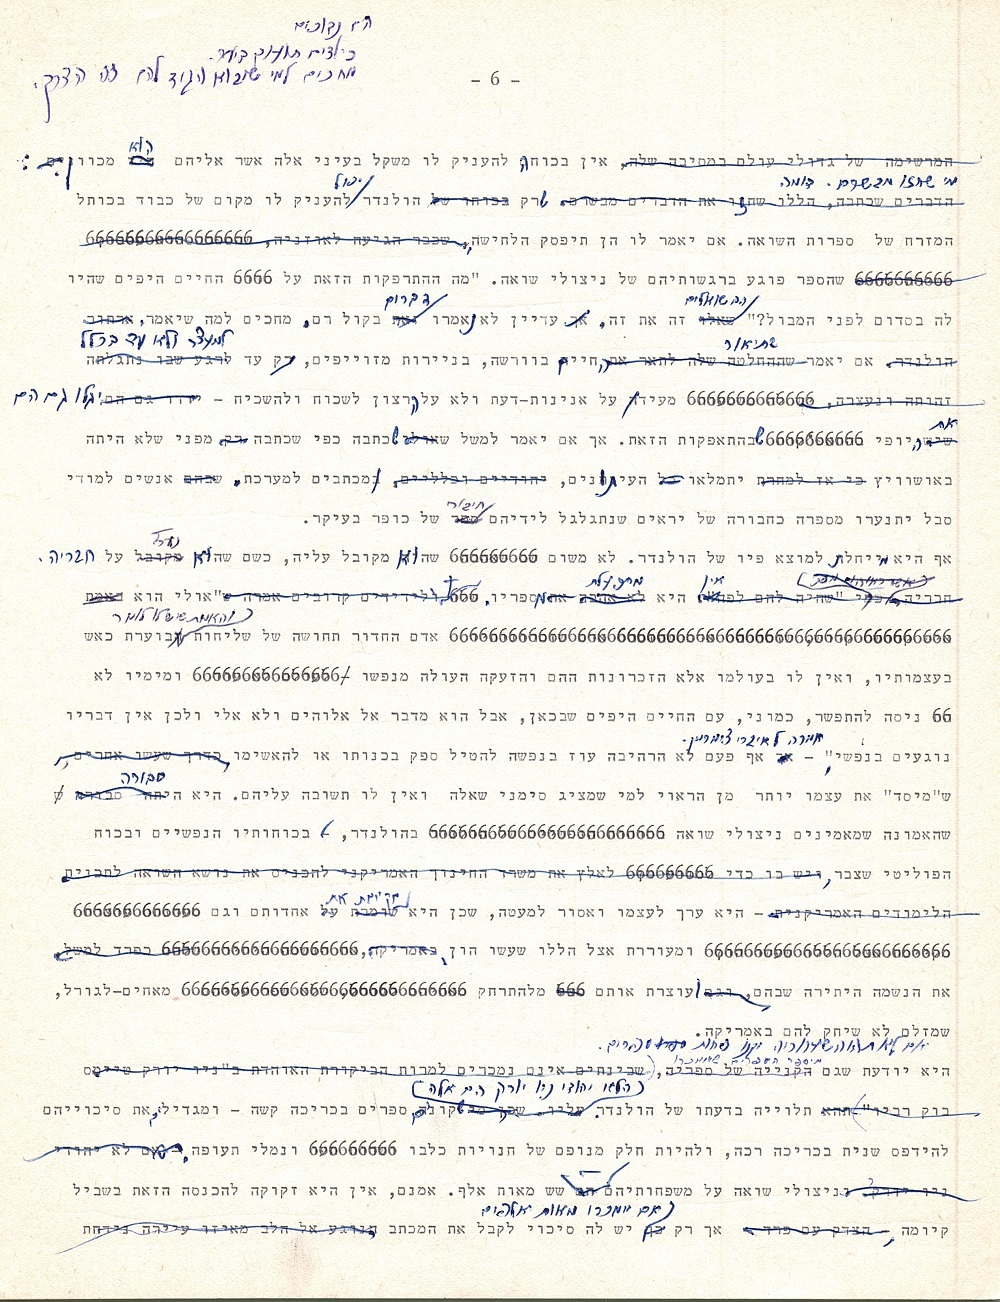 הם נבוכים
כילדים תועים ביער.
מחכים למי שיבוא ויגיד להם זה הצדק.
- 6 -
הוא
המרשימה של גדולי עולם במסיבה שלה, אין בכוחה להעניק לו משקל בעיני אלה אשר אליהם מכוונים
מי שחזו מבשרם. דומה
יכול
הדברים שכתבה, הללו שחזו את הדברים מבשרם. רק בכוחו של הולנדר להעניק לו מקום של כבוד בכותל
המזרח של ספרות השואה. אם יאמר לו הן תיפסק הלחישה, שכבר הגיעה לאוזניה, 66666666666666666
6666666666 שהספר פוגע ברגשותיהם של ניצולי שואה. "מה ההתרפקות הזאת על 6666 החיים היפים שהיו
דברים
לה בסדום לפני המבול?" שאלו זה את זה, אך עדיין לא אמרו זאת בקול רם, מחכים למה שיאמר, ארתור
שתיאור
למעצר ולאו עד בכלל
הולנדר. אם יאמר שההחלטה שלה לתאר את חיים בוורשה, בניירות מזוייפים, רק עד לרגע שבו נתגלתה
זהותה ונעצרה, 6666666666666 מעידה על אנינות-דעת ולא על רצון לשכוח ולהשכיח - יודו גם הם
יגלו גם הם
את
שיש יופי 66666666666 בהתאפקות הזאת. אך אם יאמר למשל שאולי כתבה כפי שכתבה רק מפני שלא היתה
באושוויץ כי אז למחרת יתמלאו כל העיתונים, יהודיים וכלליים, במכתבים למערכת, שבהם אנשים למודי
חיבור
סבל יתנערו מספרה כחבורה של יראים שנתגלגל לידיהם ספר של כופר בעיקר.
אף היא מייחלת למוצא פיו של הולנדר. לא משום 666666666 שהוא מקובל עליה, כשם שהוא מקובל על חבריה.
אין
חבריה, לפני "שהיה להם לפה", היא לא אהבה את ספריו, 666 לידידים קרובים אמרה "אולי הוא באמת
66666666666666666666666666666666666666666666666666 אדם החדור תחושה של שליחות בוערת כאש
בעצמותיו, ואין לו בעולמו אלא הזכרונות ההם והזעקה העולה מנפשו 66666666666666666 ומימיו לא
66 ניסה להתפשר, כמוני, עם החיים היפים שבכאן, אבל הוא מדבר אל אלוהים ולא אלי ולכן אין דבריו
נוגעים בנפשי" - אך אף פעם לא הרהיבה עוז בנפשה להטיל ספק בכנותו או להאשימו כדרך שעשו אחרים,
סבורה
ש"מיסד" את עצמו יותר מן הראוי למי שמציג סימני שאלה ואין לו תשובה עליהם. היא היתה סבורה ש
שהאמונה שמאמינים ניצולי שואה 66666666666666666666666 בהולנדר, בכוחותיו הנפשיים ובכוח
הפוליטי שצבר, ויש בו כדי 6666666666 לאלץ את משרד החינוך האמריקני להכניס את נושא השואה לתכנית
מקיימת את
הלימודים האמריקנית - היא ערך לעצמו ואסור למעטה, שכן היא שומרת על אחדותם וגם 66666666666666
6666666666666666666666666 ומעוררת אצל הללו שעשו הון באמריקה, 6666666666666666666 כפרד למשל,
את הנשמה היתירה שבהם, וגם עוצרת אותם 666 מלהתרחק 6666666666666666666666666666 מאחים-לגורל,
שמזלם לא שיחק להם באמריקה.
היא יודעת שגם הקנייה של ספריה, שבינתיים אינם נמכרים למרות הביקורת האוהדת ב"ניו יורק טיימס
(הלאו יהודי ניו יורק הם אלה)
בוק רביו" תהא תלוייה בדעתו של הולנדר עליו. שכן מי שקונה ספרים בכריכה קשה - ומגדיל את סיכוייהם
להידפס שנית בכריכה רכה, ולהיות חלק מנופם של חנויות כלבו 6666666666 ונמלי תעופה, לא יהודי
ניו יורק? ניצולי שואה על משפחותיהם הם שש מאות אלף. אמנם, אין היא זקוקה להכנסה הזאת בשביל
אם יימכרו מאות אלפים
קיומה, הצדק עם פרד - אך רק כך יש לה סיכוי לקבל את המכתב הנוגע אל הלב מאיזו עיירה נידחת